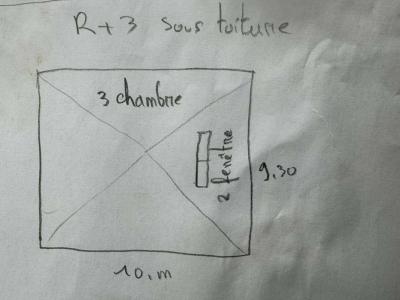 R+3 sous toiture
3 chambre
2 fenêtre
9,30
10,m